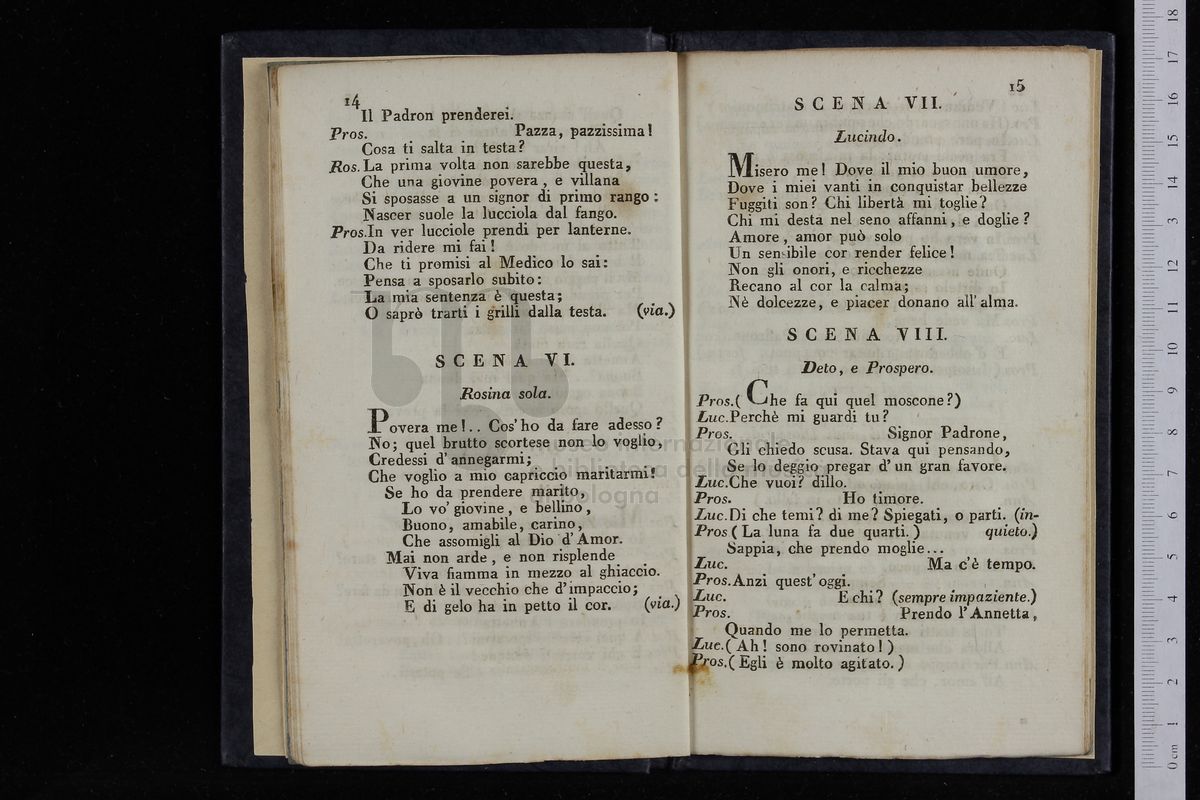 14
Il Padron prenderei.
Pros. Pazza, pazzissima!
Cosa ti salta in testa?
Ros. La prima volta non sarebbe questa,
Che una giovine povera, e villana
Si sposasse a un signor di primo rango:
Nascer suole la lucciola dal fango.
Pros. In ver lucciole prendi per lanterne.
Da ridere mi fai!
Che ti promisi al Medico lo sai:
Pensa a sposarlo subito:
La mia sentenza è questa;
O saprò trarti i grilli dalla testa. (via.)
SCENA VI.
Rosina sola.
Povera me!.. Cos' ho da fare adesso?
No; quel brutto scortese non lo voglio,
Credessi d' annegarmi;
Che voglio a mio capriccio maritarmi!
Se ho da prendere marito,
Lo vo' giovine, e bellino,
Buono, amabile, carino,
Che assomigli al Dio d' Amor.
Mai non arde, e non risplende
Viva fiamma in mezzo al ghiaccio.
Non è il vecchio che d' impaccio;
E di gelo ha in petto il cor. (via.)
15
SCENA VII.
Lucindo.
Misero me! Dove il mio buon umore,
Dove i miei vanti in conquistar bellezze
Fuggiti son? Chi libertà mi toglie?
Chi mi desta nel seno affanni, e doglie?
Amore, amor può solo
Un sensibile cor render felice!
Non gli onori, e ricchezze
Recano al cor la calma;
Nè dolcezze, e piacer donano all' alma.
SCENA VIII.
Deto, e Prospero.
Pros. ( Che fa qui quel moscone?)
Luc. Perchè mi guardi tu?
Pros. Signor Padrone,
Gli chiedo scusa. Stava qui pensando,
Se lo deggio pregar d' un gran favore.
Luc. Che vuoi? dillo.
Pros. Ho timore.
Luc. Di che temi? di me? Spiegati, o parti. (in-
Pros ( La luna fa due quarti. ) quieto.)
Sappia, che prendo moglie...
Luc. Ma c'è tempo.
Pros. Anzi quest' oggi.
Luc. E chi? (sempre impaziente.)
Pros. Prendo l' Annetta,
Quando me lo permetta.
Luc. ( Ah! sono rovinato! )
Pros. ( Egli è molto agitato. )
museo internazionale
e biblioteca della musica
di bologna
0 cm 1 2 3 4 5 6 7 8 9 10 11 12 13 14 15 16 17 18